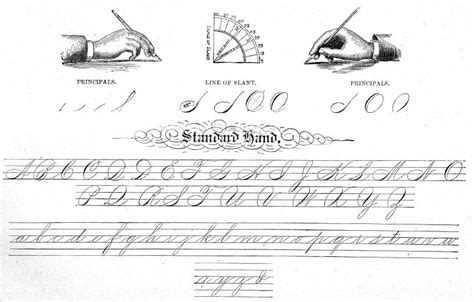 PRINCIPALS. LINE OF SLANT. PRINCIPALS.
Standard Hand.
A B C D E F G H I J K L M N O
P Q R S T U V W X Y Z
a b c d e f g h i j k l m n o p q r s t u v w
x y z &